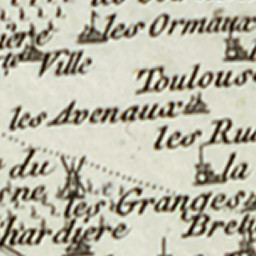 les Ormaux
ière
Ville
Toulous
les Avenaux
les Ru
du
la
sne
les Granges
hardière
Bret